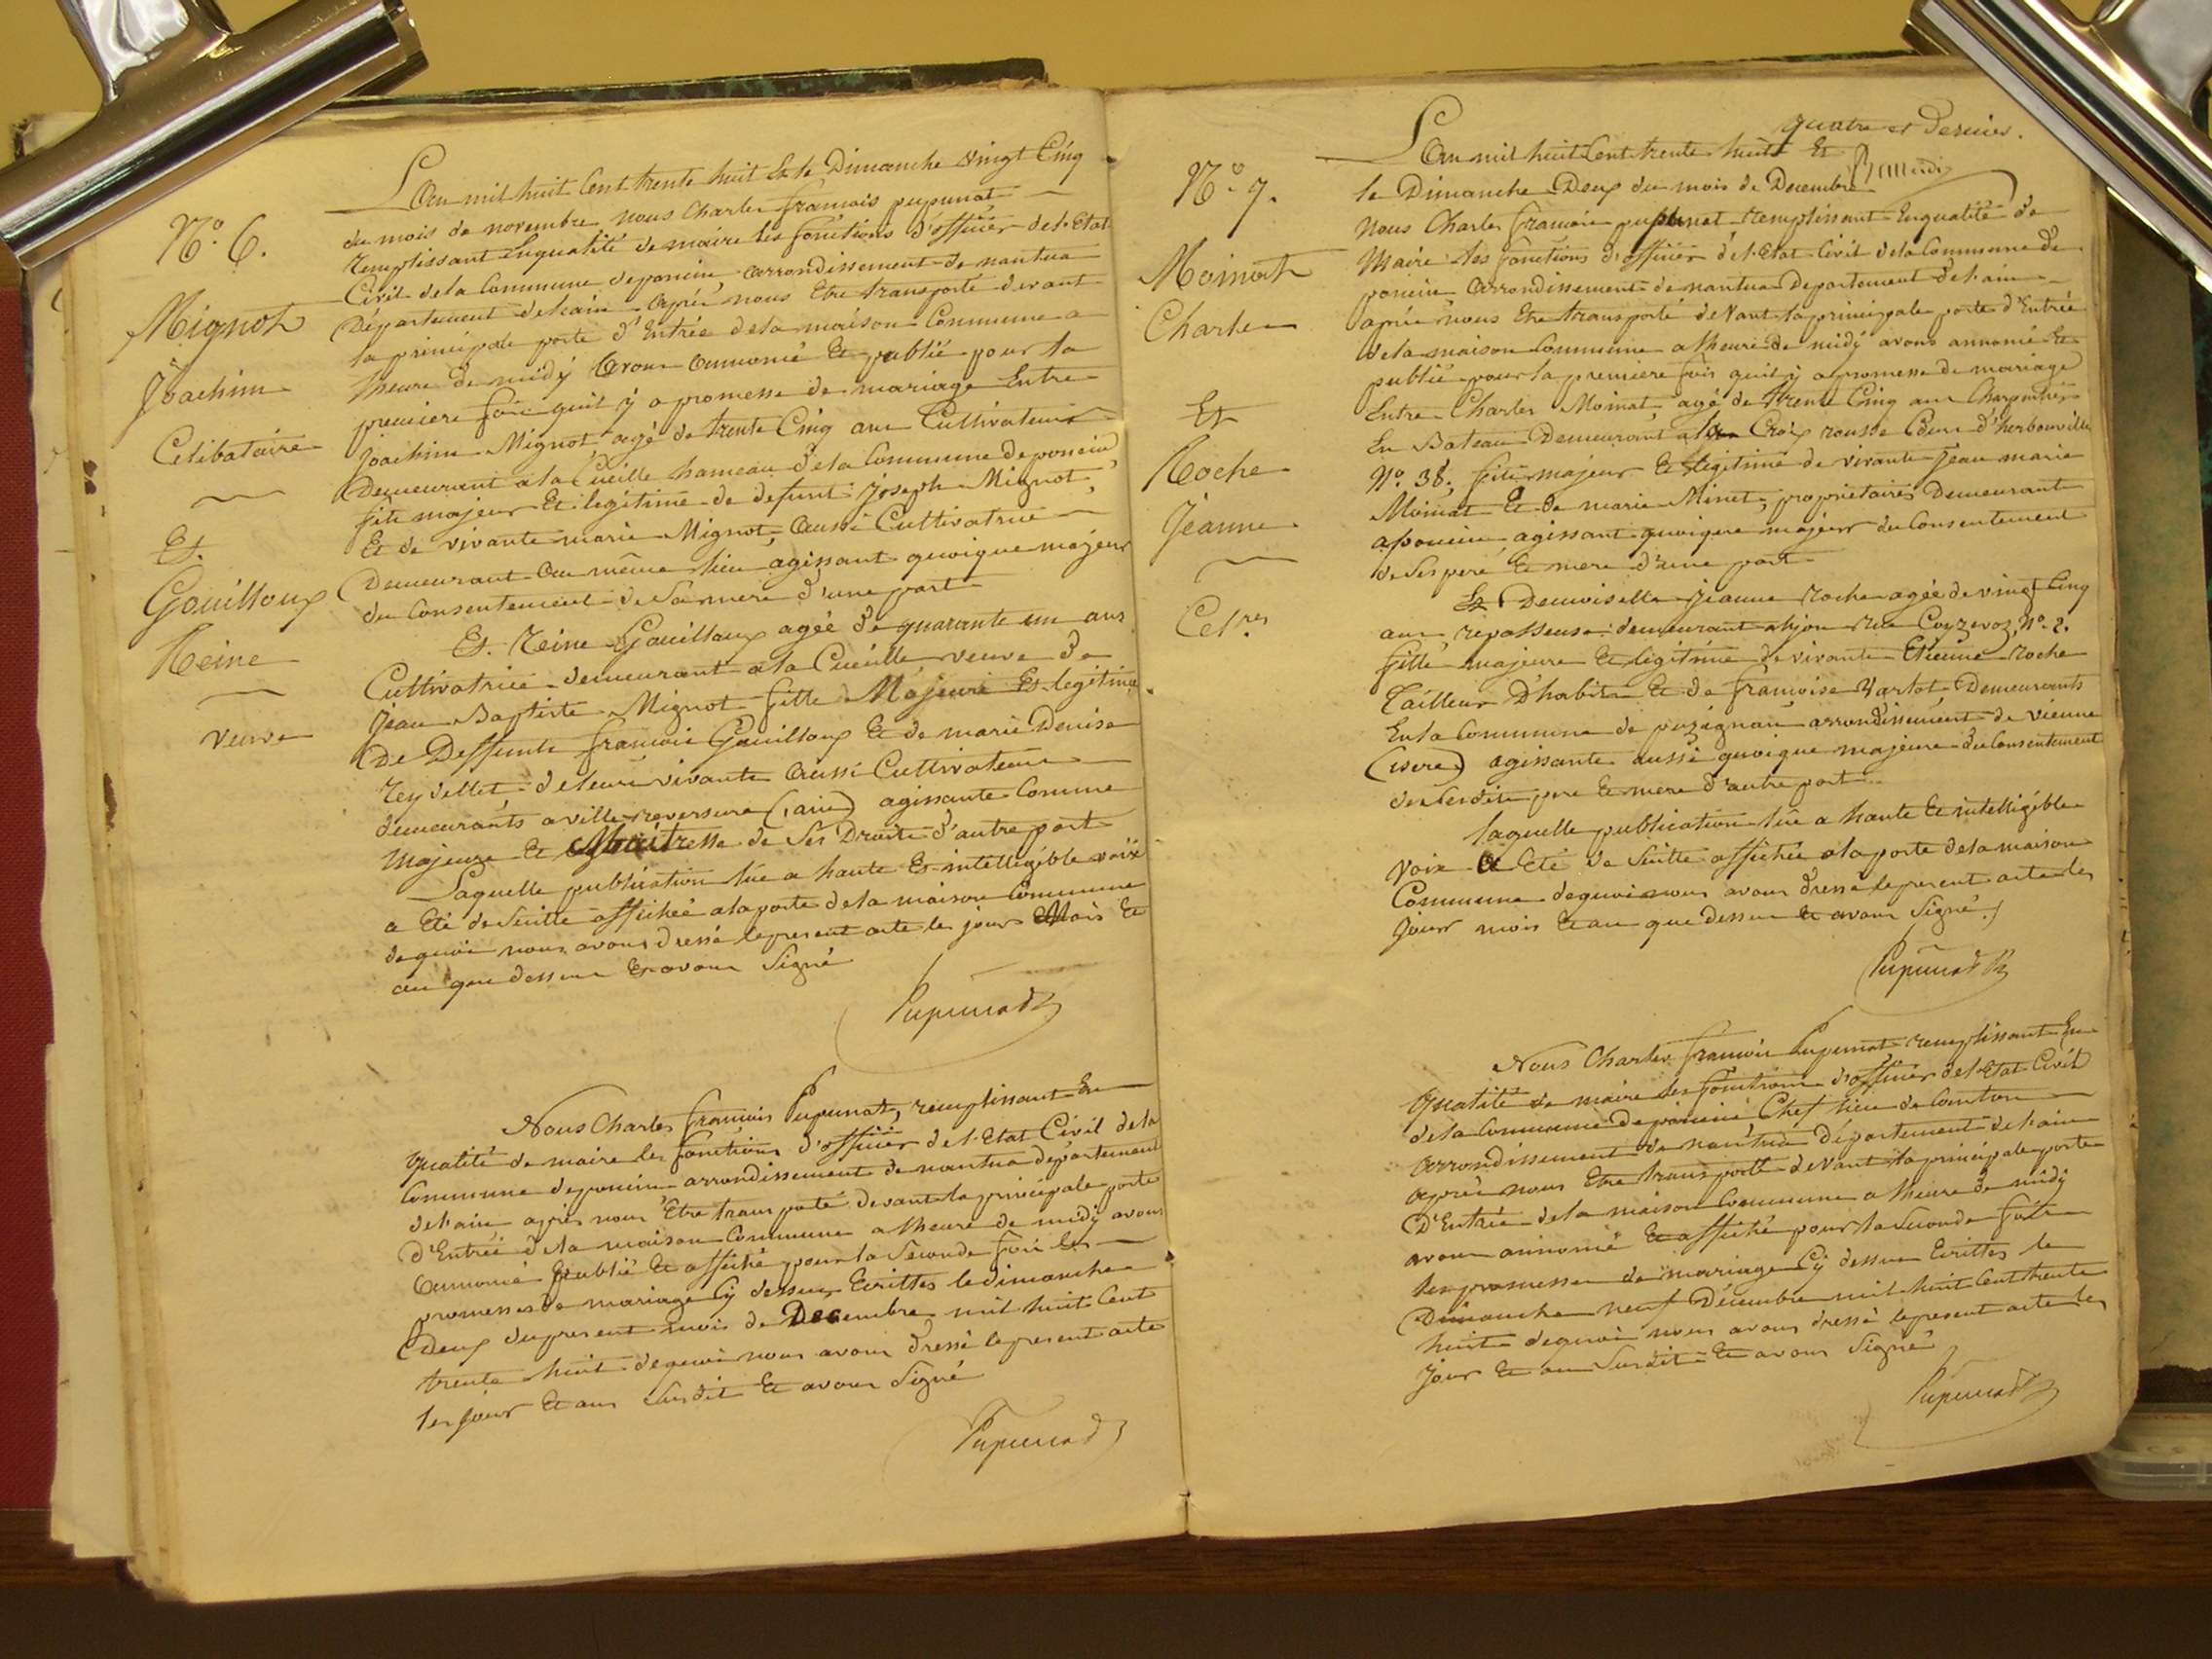 N.° 6.
Mignot
Joachim
Célibataire
Et.
Gouilloux
Reine
veuve
L'an mil huit Cent trente huit Et le Dimanche vingt Cinq
du mois de novembre nous Charles francois pupunat
remplissant Enqualité de maire les fonctions d'officier de l'Etat
Civil dela Commune deponcin arrondissement de nantua
Département delain après nous Etre transporté devant
la principale porte d'Entrée dela maison Commune a
lheure de midÿ avons annoncé Et publié pour la
premiere fois quil ÿ a promesse de mariage Entre
joachim Mignot, agé de trente Cinq ans Cultivateur
Demeurant ala Cueille hameau dela Commune deponcin
fils majeur Et legitime de defunt joseph Mignot,
Et de vivante marie Mignot, aussi Cultivatrice
Demeurant au même lieu agissant quoique majeur
du Consentement de Sa mere d'une part
Et. Reine Gouilloux agée de quarante un ans
Cultivatrice demeurant ala Cueille veuve de
Jean Baptiste Mignot fille Majeure Et legitime
De Deffunts francois Gouilloux Et de marie Denise
Reydellet deleurs vivants aussi Cultivateurs
demeurants a villereversure (ain) agissante Comme
Majeure Et Maitresse de Ses Droits d'autre part
Laquelle publication lue a haute Et intelligible voix
a Eté de Suitte affichée ala porte dela maison Commune
dequoi nous avons dressé lepresent acte les jour Mois Et
an que dessus Et avons Signé
Pupunat
Nous Charles francois Pupunat, remplissant En
qualité de maire les fonctions d'officier de l'Etat Civil dela
Commune deponcin arrondissement de nantua département
delain après nous Etre transporté devant la principale porte
d'Entrée dela maison Commune a lheure de midÿ avons
annoncé publié Et affiché pour la Seconde fois les
promesses de mariage Cÿ dessus Ecrittes le dimanche
Deux dupresent mois de Decembre mil huit Cent
trente huit dequoi nous avons dressé lepresent acte
les jour Et an Susdit Et avons Signé
Pupunat
quatre et dernier.
N.° 7.
Moinat
Charles
Et
Roche
Jeanne
Cel.res
L'an mil huit Cent trente huit Et
le Dimanche Deux du mois de Decembre
Nous Charles francois pupunat remplissant Enqualité de
Maire les fonctions d'officier de l'Etat Civil dela Commune de
poncin arrondissement de nantua Departement delain
après nous Etre transporté deVant la principale porte d'Entrée
dela maison Commune a lheure de midÿ avons annoncé Et
publié pour la premiere fois quil ÿ a promesse de mariage
Entre Charles Moinat, agé de trente Cinq ans Charpentier
En Bateau Demeurant a la Croix rousse Cours d'herbouville
N.° 38. fils majeur Et legitime de vivants Jean marie
Moinat Et de marie Minet, propriétaires Demeurants
aponcin agissant quoique majeur du Consentement
de Ses pere Et mere d'une part
Et Demoiselle Jeanne Roche agée de vingt Cinq
ans repasseuse demeurant alyon rue Coyzevoz, N.° 2.
fille majeure Et legitime de vivants Etienne Roche
Tailleur D'habits Et de francoise Varlot Demeurants
En la Commune de puzignan arrondissement de vienne
(isere) agissante aussi quoique majeure du Consentement
de Sesdits pere Et mere d'autre part
laquelle publication lue a haute Et intelligible
Voix a Eté de Suitte affichée ala porte dela maison
Commune dequoi nous avons dressé lepresent acte les
jour mois Et an que dessus Et avons Signé./
Pupunat
Nous Charles francois Pupunat remplissant En
qualité de maire les fonctions d'officier del'Etat Civil
dela Commune deponcin Chef lieu de Canton
arrondissement de nantua Département delain
après nous Etre transporté deVant la principale porte
D'Entrée dela maison Commune a lheure de midÿ
avons annoncé Et affiché pour la Seconde fois
les promesses de mariage Cÿ dessus Ecrittes le
Dimanche neuf Décembre mil huit Cent trente
huit dequoi nous avons dressé lepresent acte les
jour Et an Susdit Et avons Signé
Pupunat